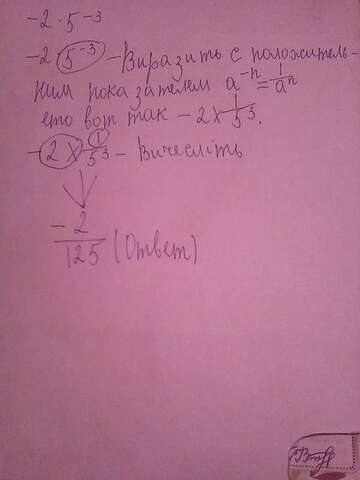 -2 · 5⁻³
-2 · 5⁻³ - Виразить с положитель-
ним показателем a⁻ⁿ = 1/aⁿ
ето вот так - 2 × 1/5³.
- 2 × 1/5³ - Вичесліть
-2/125 (Ответ)